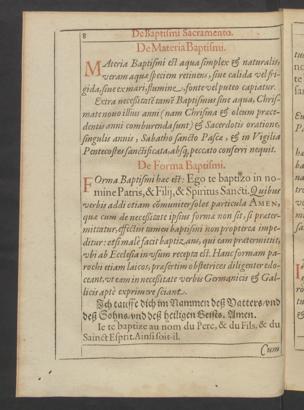 8
De Baptismi Sacramento.
De Materia Baptismi.
MAteria Baptismi est aqua simplex & naturalis,
veram aquæ speciem retinens, siue calida vel fri-
gida, siue ex mari, flumine, fonte vel puteo capiatur.
Extra necessitatē tamē Baptismus sine aqua, Chris-
mate nouo illius anni (nam Chrisma & oleum præce-
dentis anni comburenda sunt) & Sacerdotis oratione,
singulis annis, Sabatho sancto Pascæ, & in Vigilia
Pentecostes sanctificata, absq; peccato conferri nequit.
De Forma Baptismi.
FOrma Baptismi hæc est: Ego te baptizo in no-
mine Patris, & Filij, & Spiritus Sancti. Quibus
verbis addi etiam cōmuniter solet particula AMEN,
quæ cum de necessitate ipsius forma non sit, si præter-
mittatur, effectus tamen baptismi non propterea impe-
ditur: etsi malè facit baptizans, qui eam prætermittit,
vbi ab Ecclesia in vsum recepta est. Hanc formam pa-
rochi etiam laicos, præsertim obstetrices diligenter edo-
ceant, vt eam in necessitate verbis Germanicis & Gal-
licis aptè exprimere sciant.
Ich tauffe dich im Nammen deß Vatters, vnd
deß Sohns, vnd deß heiligen Geists. Amen.
Ie te baptize au nom du Pere, & du Fils, & du
Sainct Esprit. Ainsi soit-il.
Cum